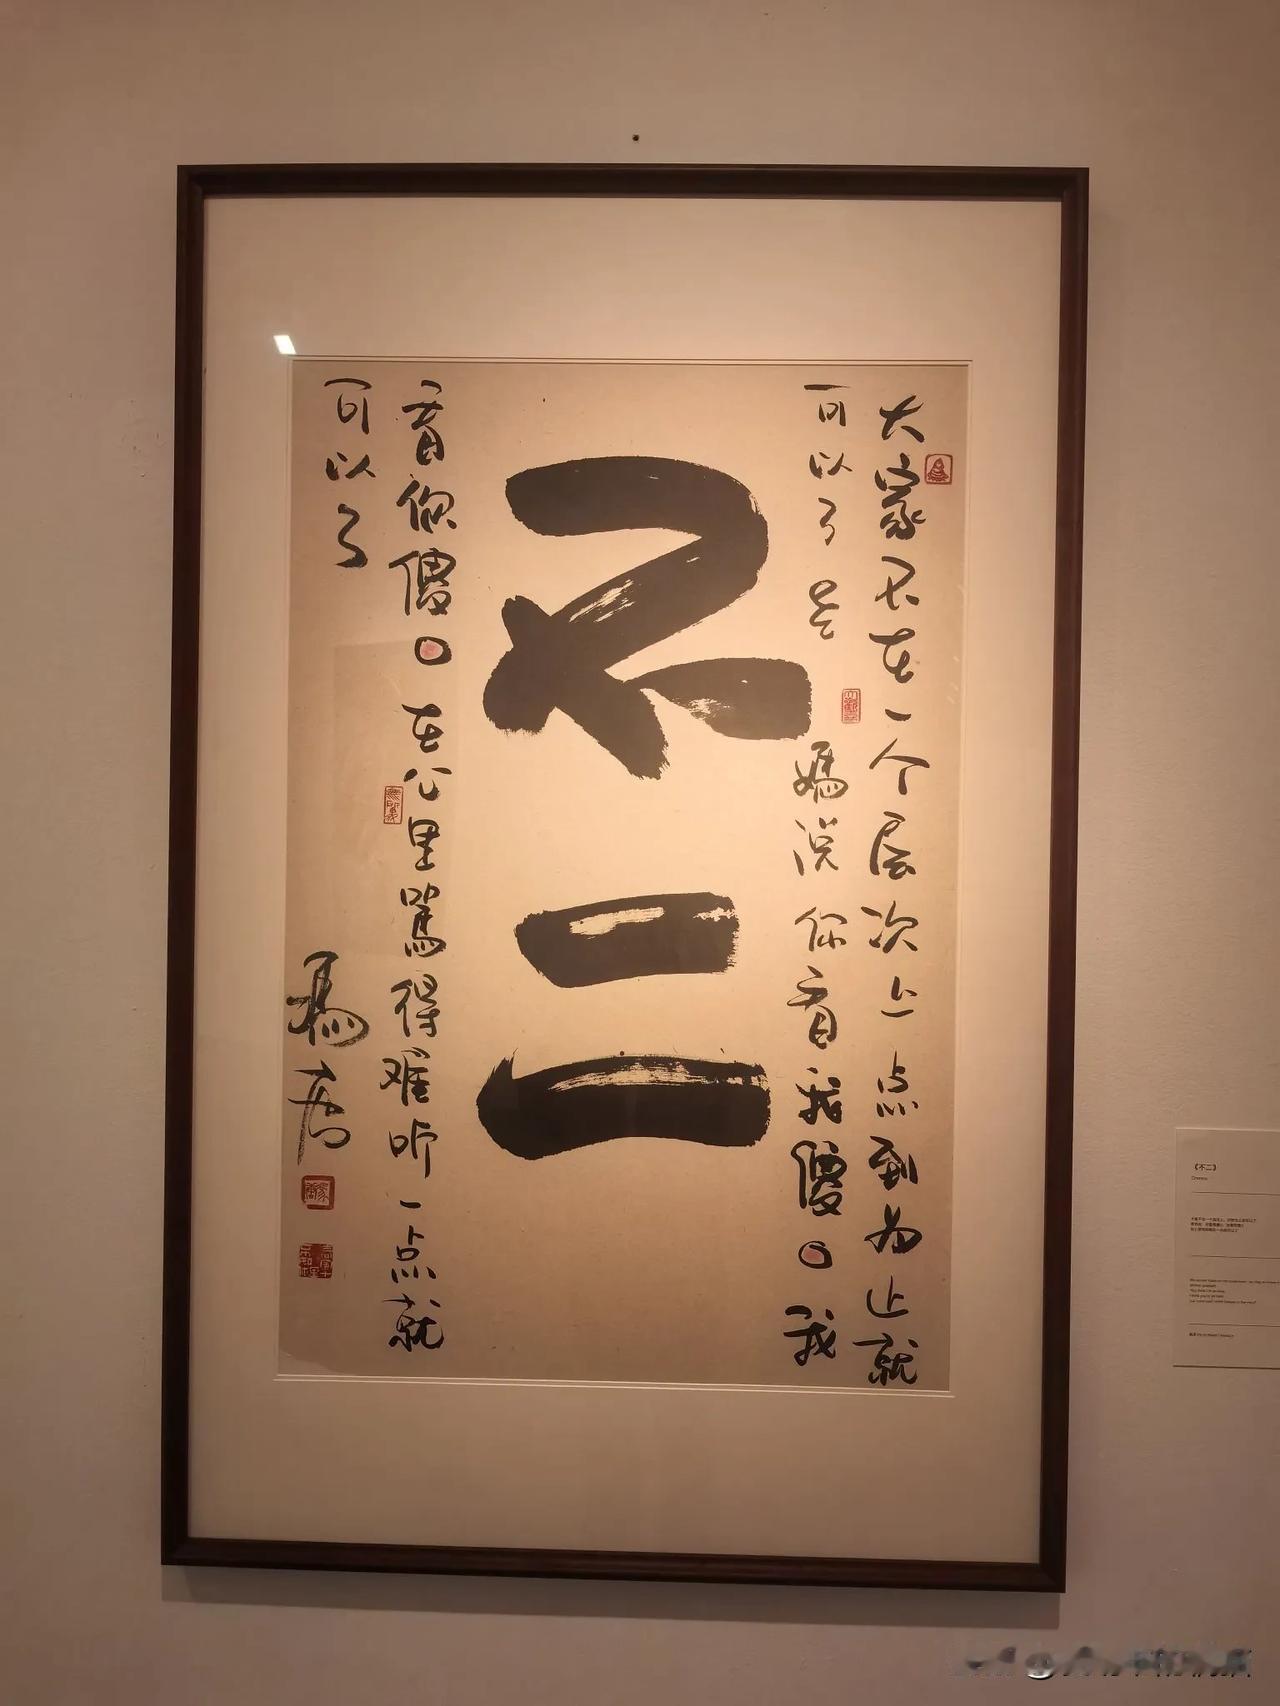 大家不在一个层次上点到为止就
可以了老媽说你看我傻〇我
不二
看你傻〇在心里駡得难听一点就
可以了
馮唐
《不二》
Oneness